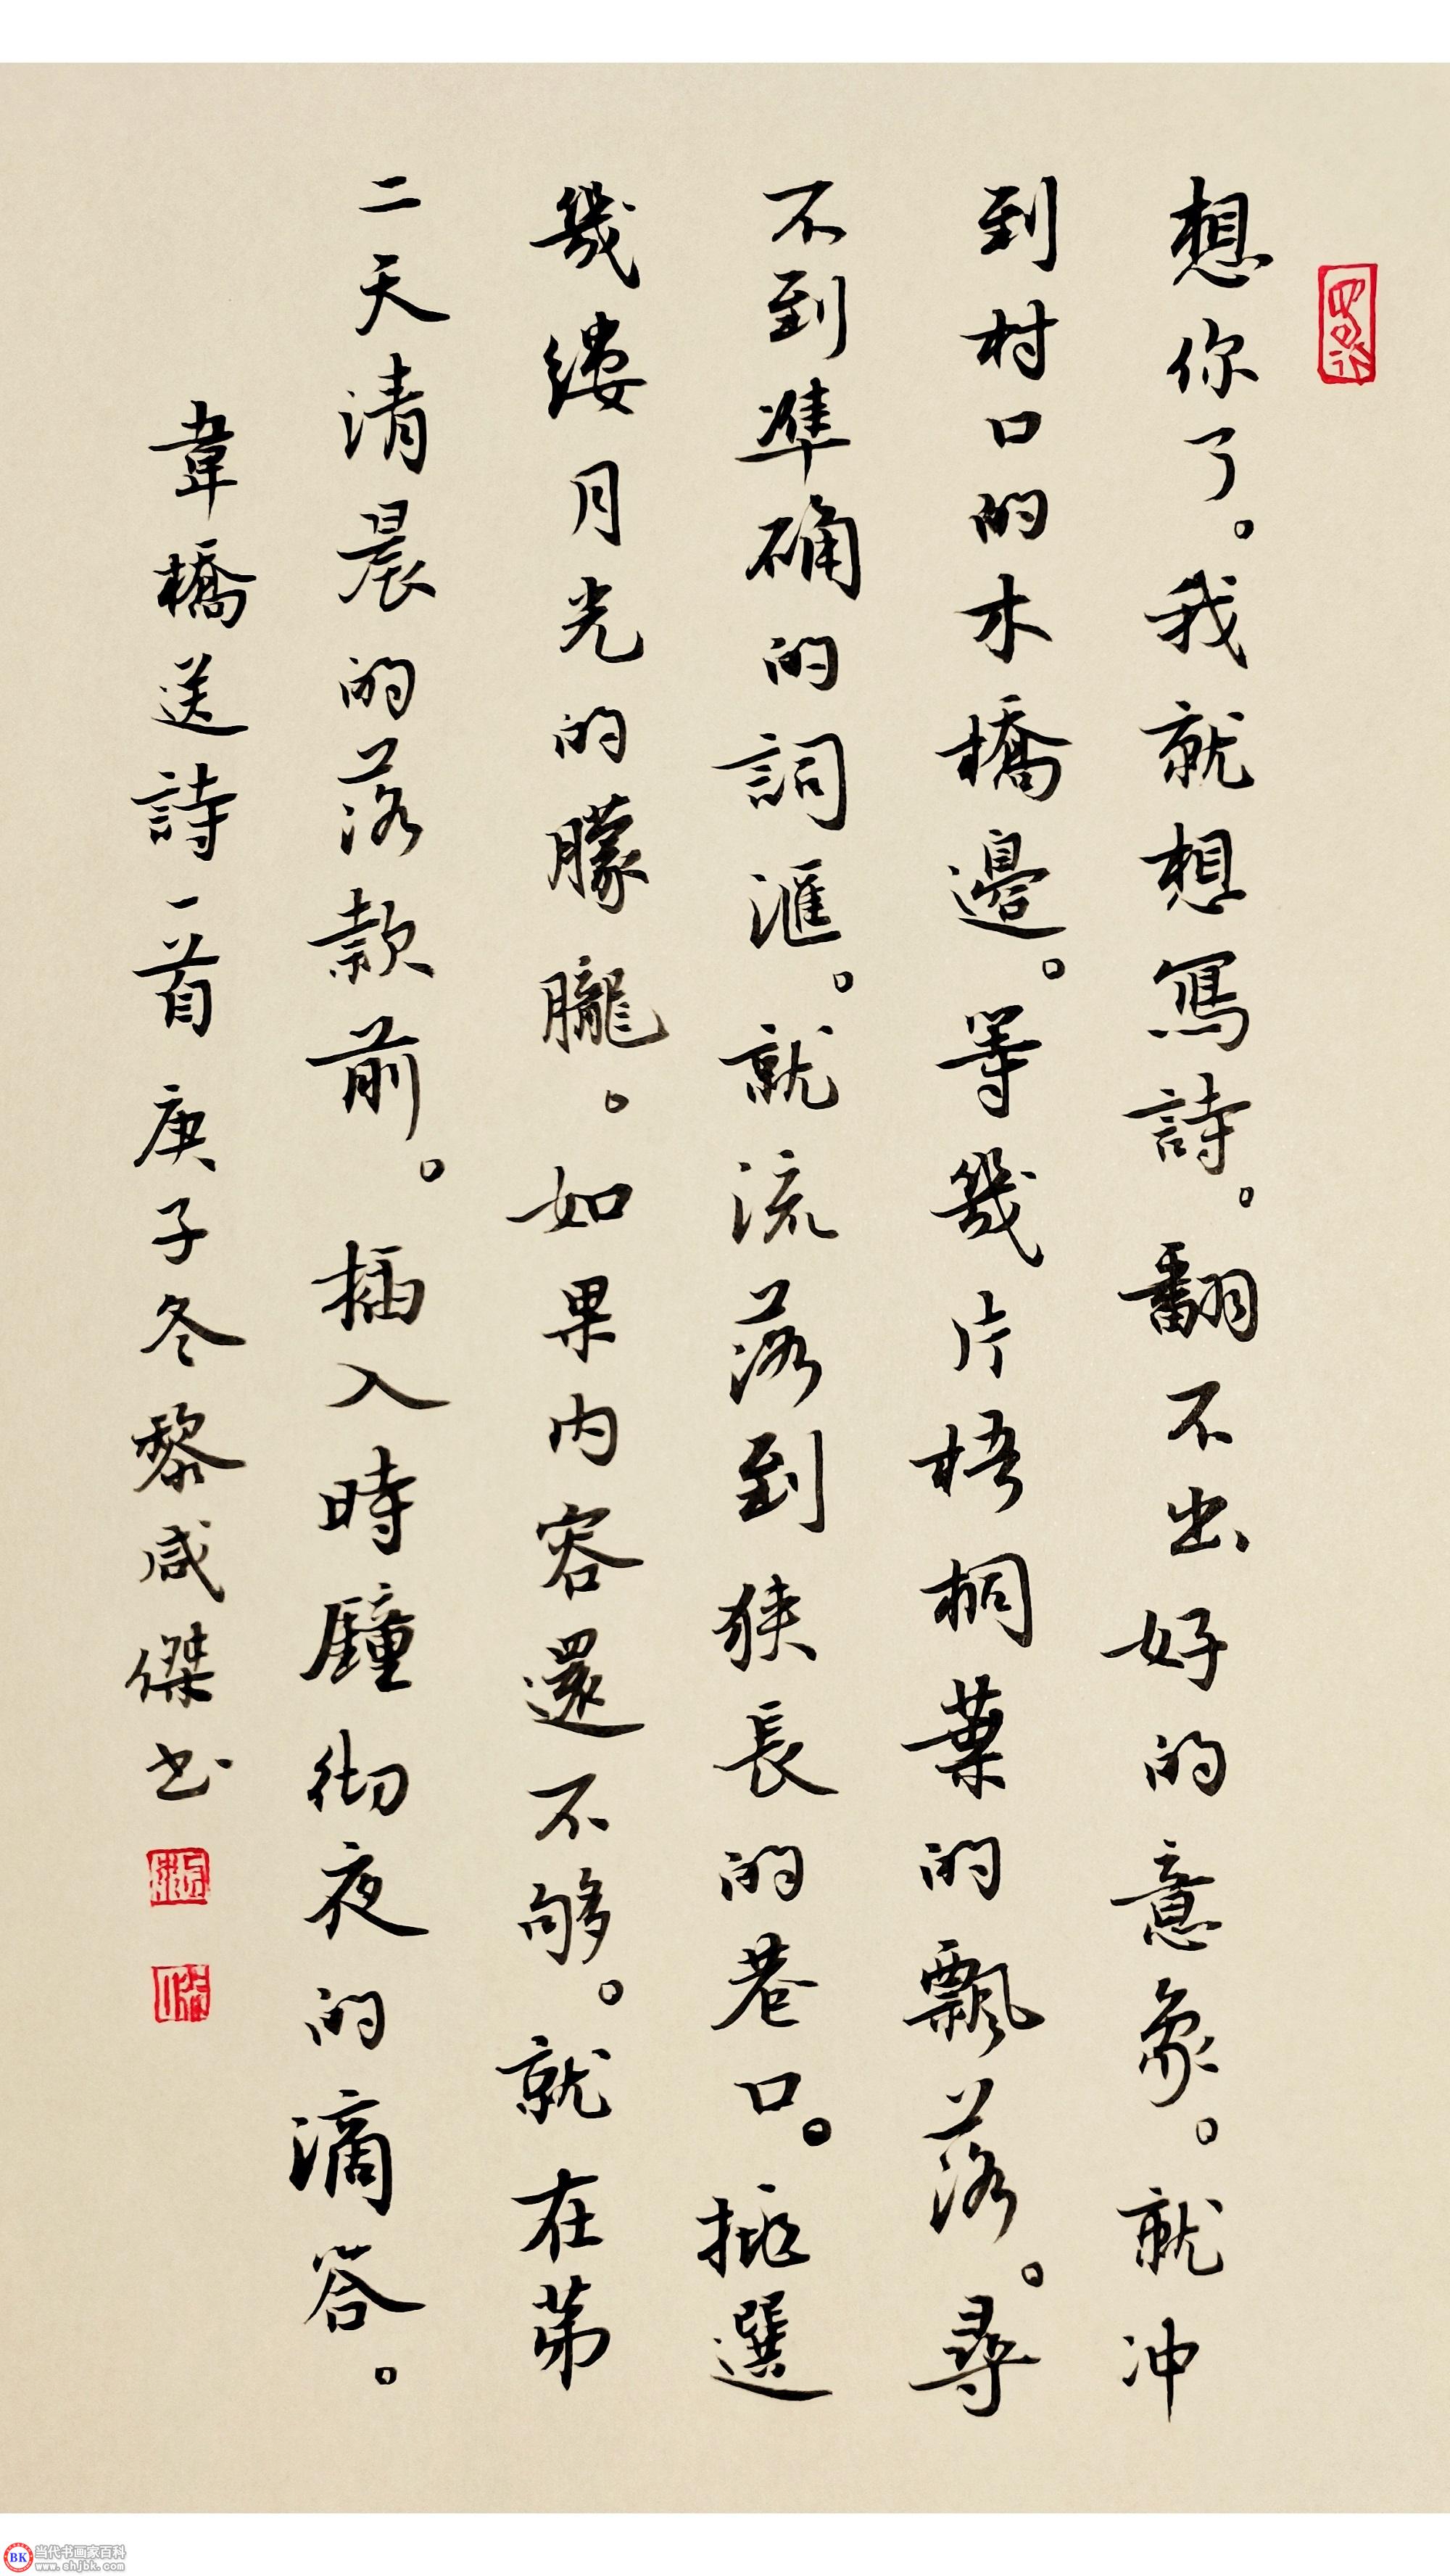 想你了。我就想寫詩。翻不出好的意象。就冲
到村口的木橋邊。等幾片梧桐葉的飄落。尋
不到準确的詞滙。就流落到狹長的巷口。挑選
幾缕月光的朦朧。如果内容還不够。就在苐
二天清晨的落款前。插入時鐘彻夜的滴答。
韋橋送詩一首庚子冬黎咸傑书
当代书画家百科
www.shjbk.com
BK